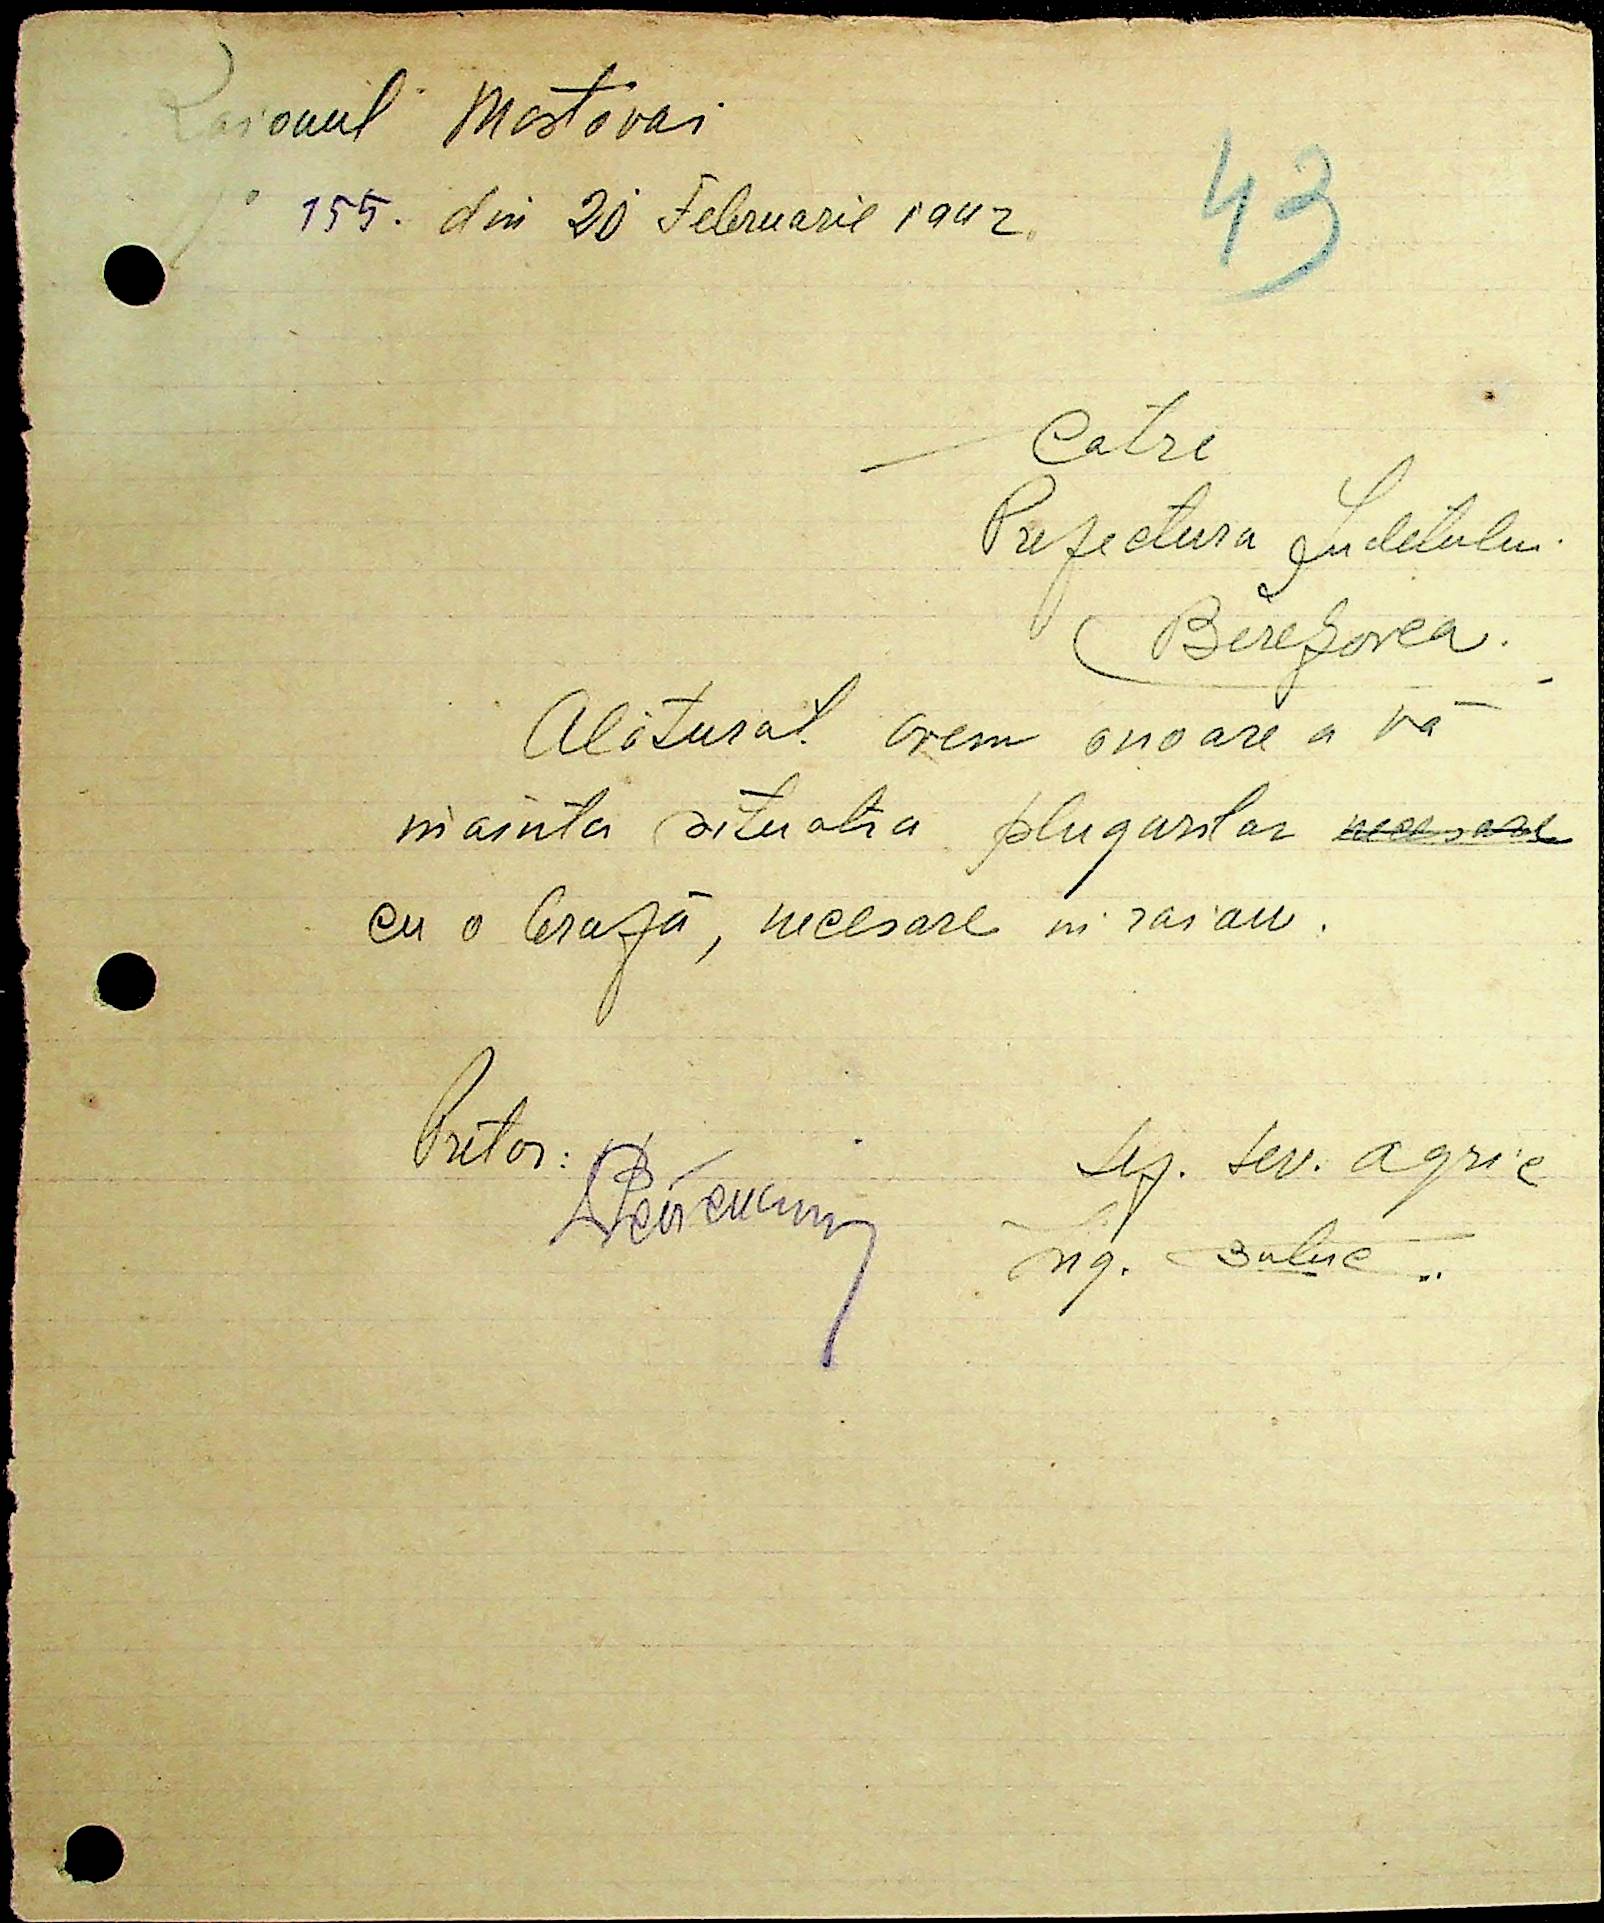 Raionul Mostovoi
No 155. din 20 Februarie 1942.
43
Catre
Prefectura Judetului
Berezovca.
Alăturat avem onoare a vă
inainta situatia plugurilor necesare
cu o brazdă, necesare in raion.
Pretor:
Sef. serv. agric
Ing.